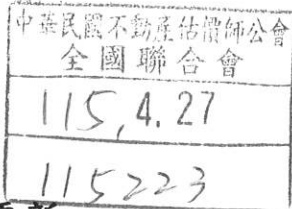 中華民國不動產估價師公會
全國聯合會
115.4.27
115223